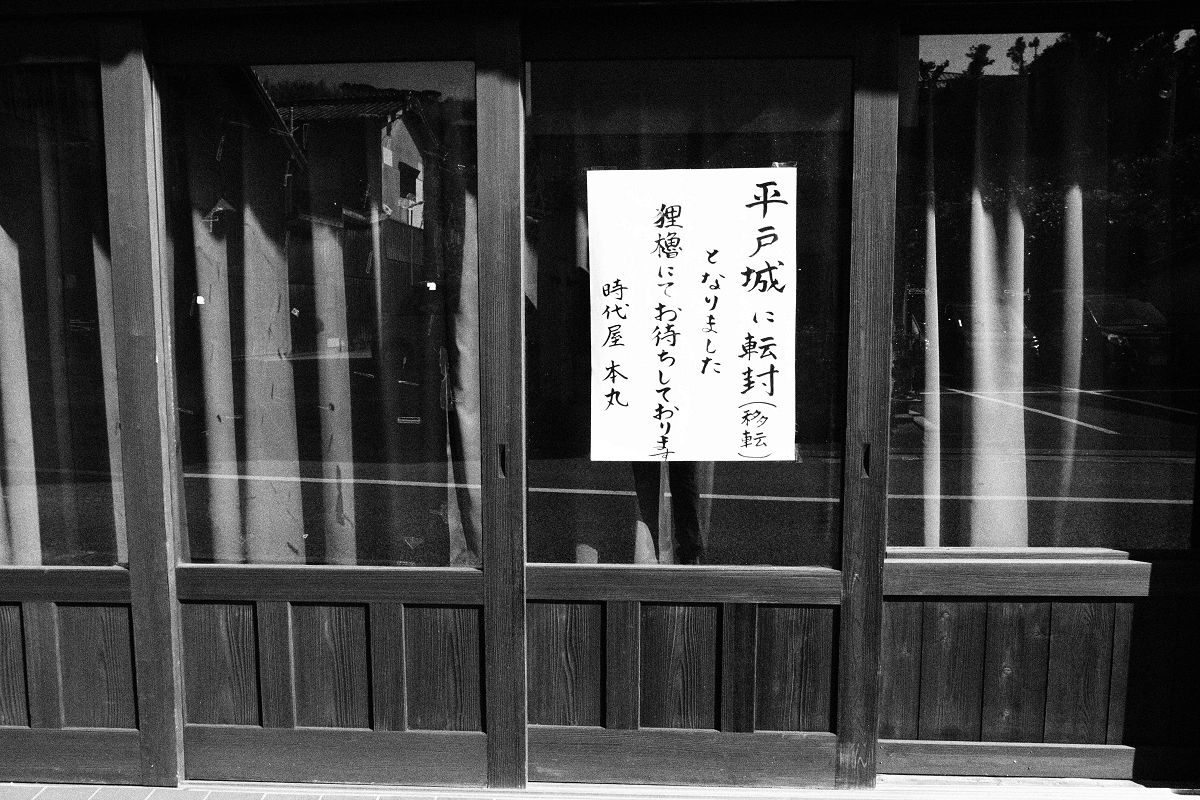 平戸城に転封(移転)
となりました
狸櫓にてお待ちしております
時代屋 本丸